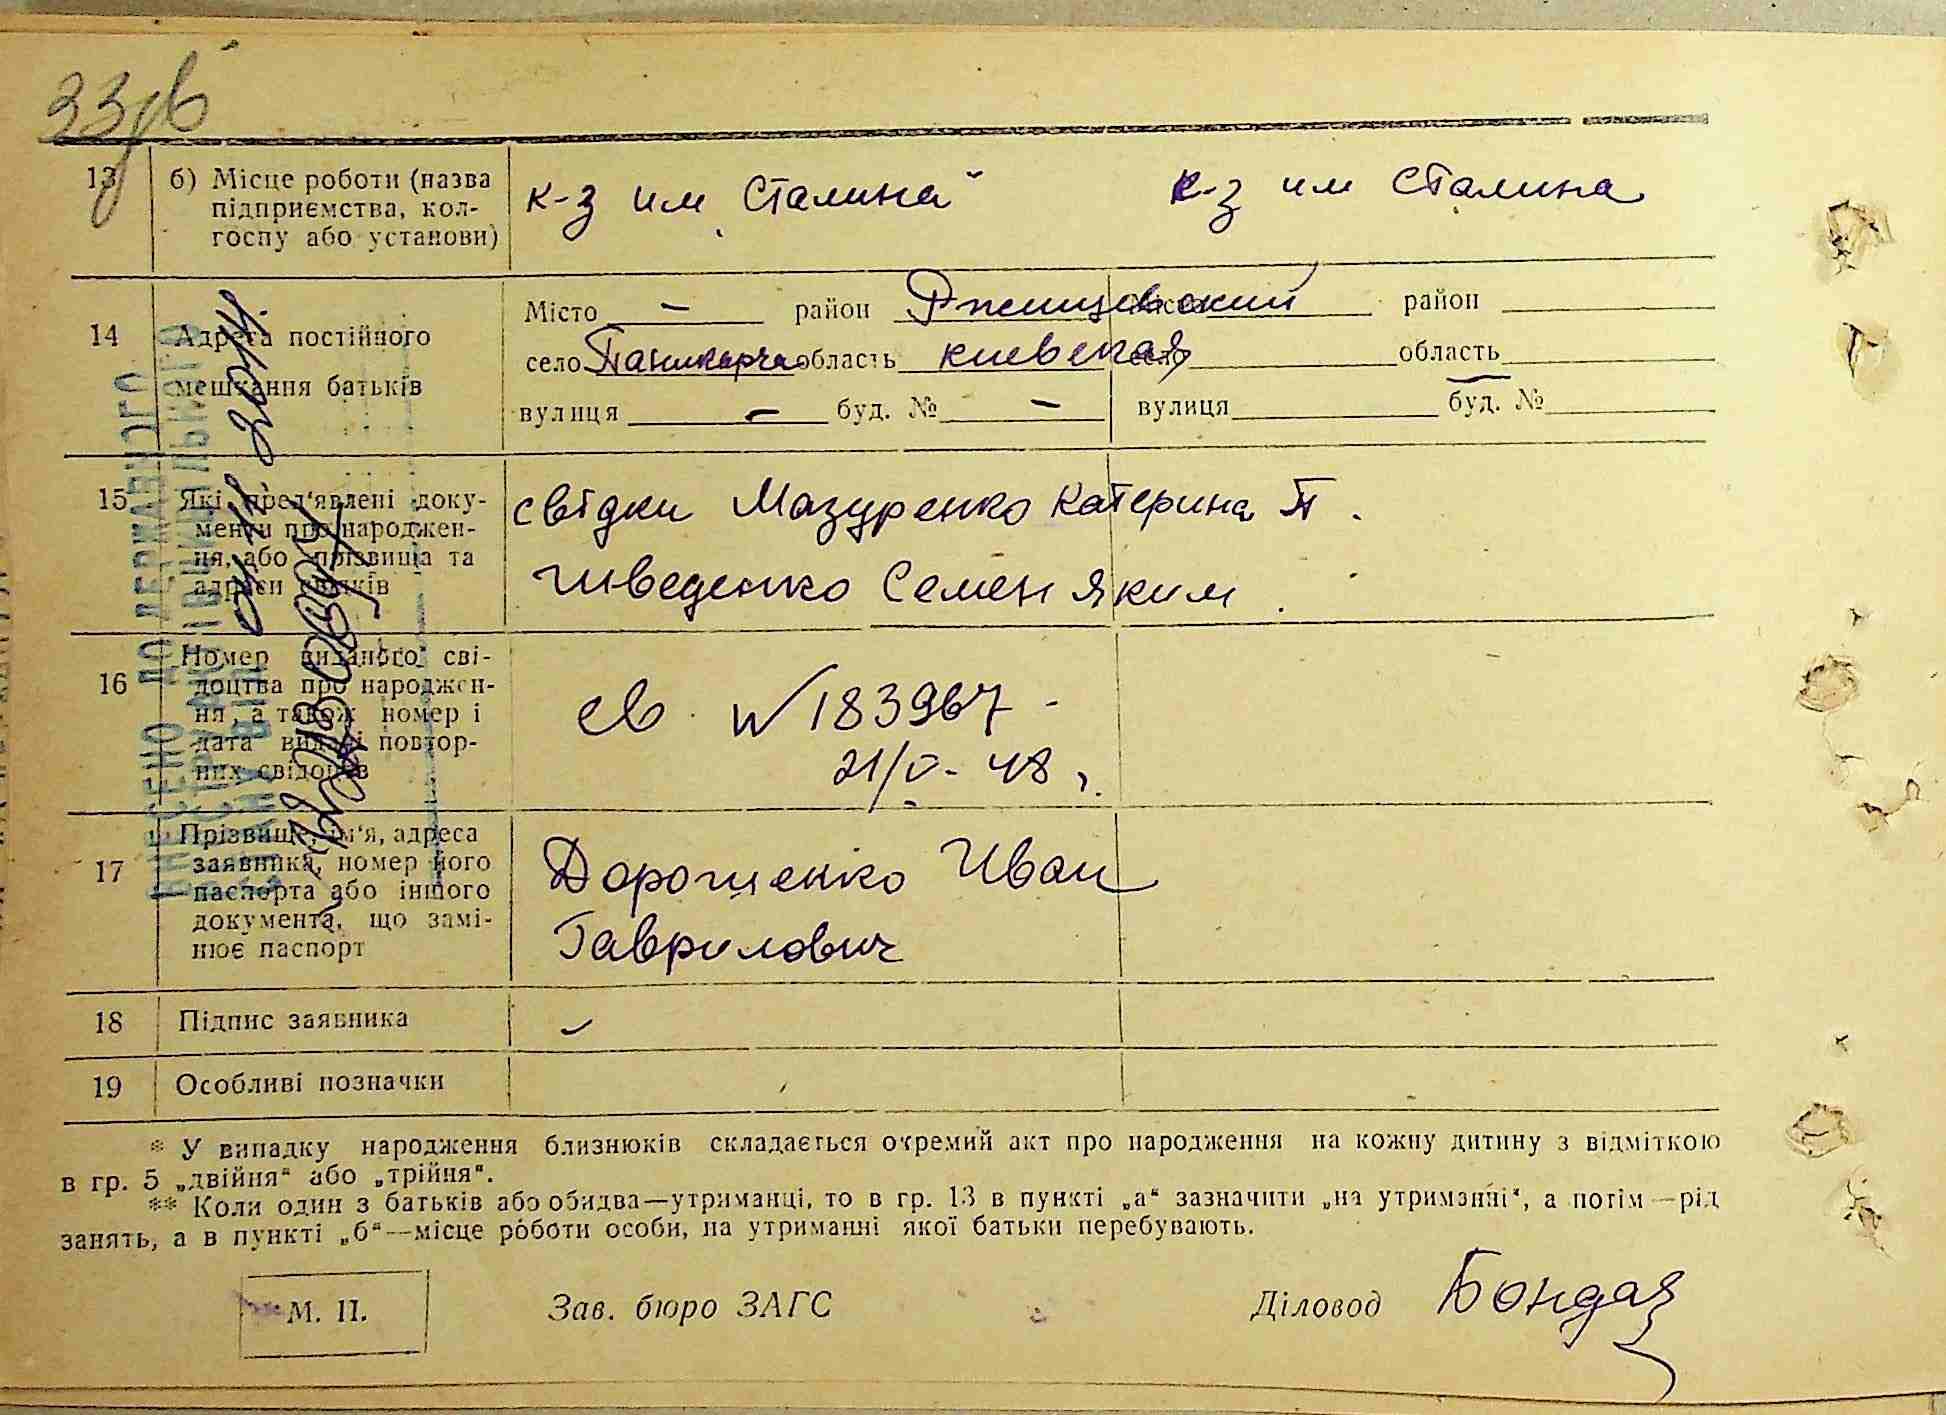 33 зв
13 б) Місце роботи (назва підприємства, кол-госпу або установи) к-з им Сталина к-з им Сталина
14 Адреса постійного мешкання батьків
Місто — район Ржищевский Місто район
село Паникарча область киевская село область
вулиця — буд. № — вулиця — буд. №
15 Які пред'явлені доку-
менти про народжен-
ня, або прізвища та
адреси свідків
свідки Мазуренко Катерина П.
Шведенко Семен Яким.
16 Номер виданого сві-
доцтва про народжен-
ня, а також номер і
дата видачі повтор-
них свідоцтв
св. № 183967 -
21/V - 48 г.
17 Прізвище, ім'я, адреса
заявника, номер його
паспорта або іншого
документа, що замі-
нює паспорт
Дорошенко Иван
Гаврилович
18 Підпис заявника —
19 Особливі позначки
* У випадку народження близнюків складається окремий акт про народження на кожну дитину з відміткою
в гр. 5 „двійня“ або „трійня“.
** Коли один з батьків або обидва—утриманці, то в гр. 13 в пункті „а“ зазначити „на утриманні“, а потім—рід
занять, а в пункті „б“—місце роботи особи, на утриманні якої батьки перебувають.
М. П. Зав. бюро ЗАГС Діловод Бондар
ВНЕСЕНО ДО ДЕРЖАВНОГО